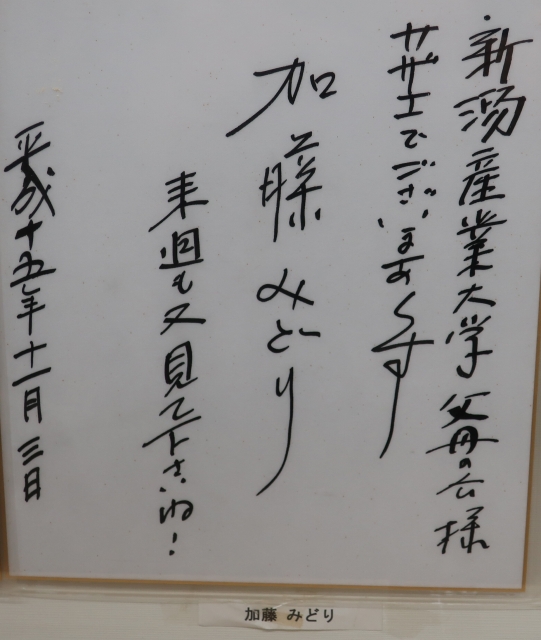 新潟産業大学 父母の会様
サザエでございまあくす
加藤みどり
来週も又見て下さいね!
平成十五年十一月三日
加藤 みどり